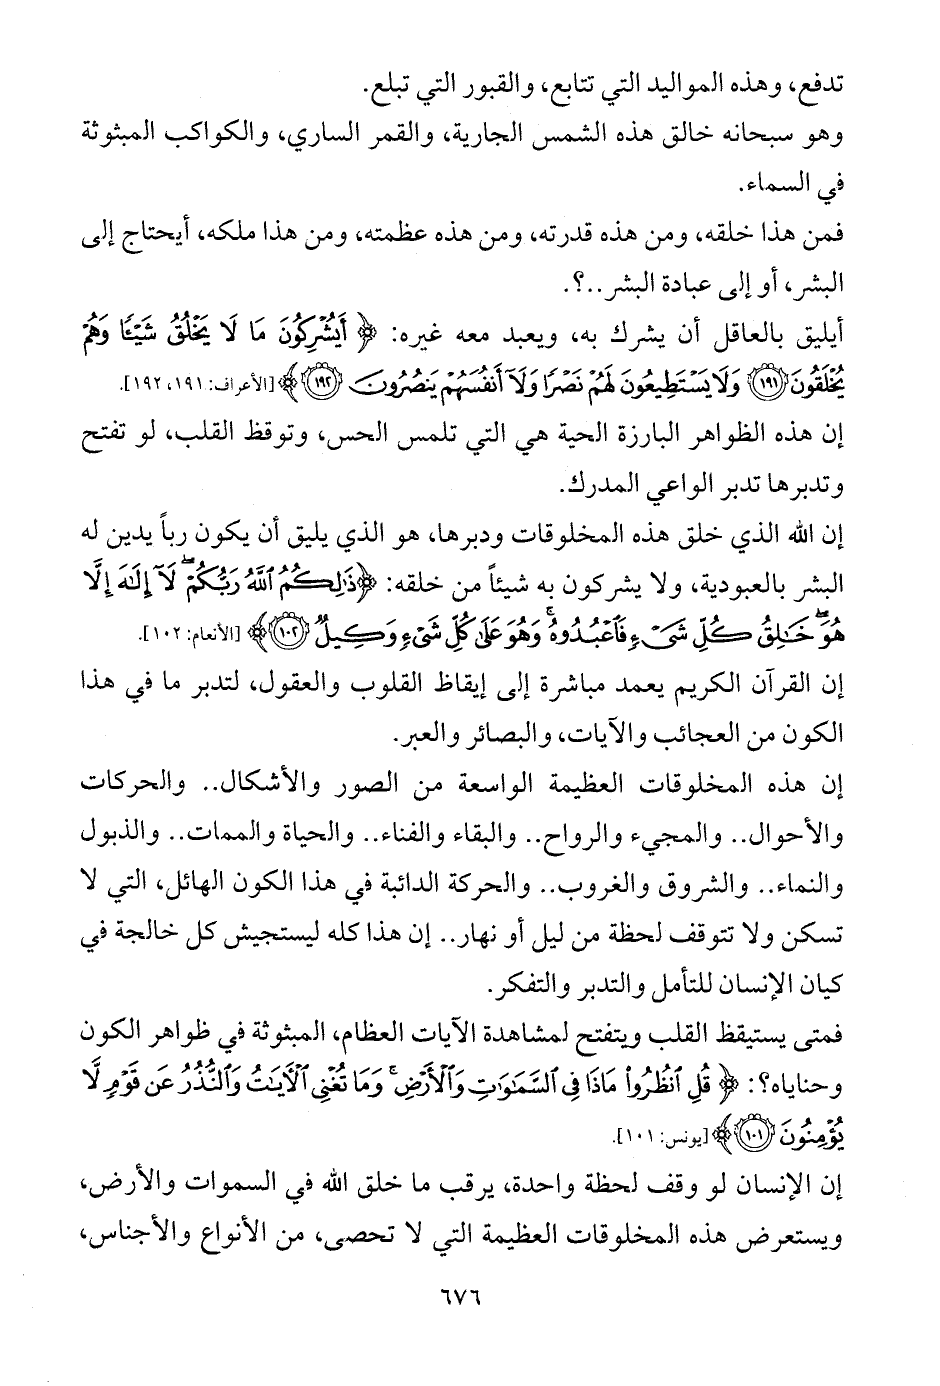 تدفع، وهذه المواليد التي تتابع، والقبور التي تبلع.
وهو سبحانه خالق هذه الشمس الجارية، والقمر الساري، والكواكب المبثوثة
في السماء.
فمن هذا خلقه، ومن هذه قدرته، ومن هذه عظمته، ومن هذا ملكه، أيحتاج إلى
البشر، أو إلى عبادة البشر..؟.
أيليق بالعاقل أن يشرك به، ويعبد معه غيره: ﴿أَيُشْرِكُونَ مَا لَا يَخْلُقُ شَيْئًا وَهُمْ
يُخْلَقُونَ ﴿١٩١﴾ وَلَا يَسْتَطِيعُونَ لَهُمْ نَصْرًا وَلَآ أَنفُسَهُمْ يَنصُرُونَ ﴿١٩٢﴾﴾ [الأعراف: ١٩١، ١٩٢].
إن هذه الظواهر البارزة الحية هي التي تلمس الحس، وتوقظ القلب، لو تفتح
وتدبرها تدبر الواعي المدرك.
إن الله الذي خلق هذه المخلوقات ودبرها، هو الذي يليق أن يكون رباً يدين له
البشر بالعبودية، ولا يشركون به شيئاً من خلقه: ﴿ذَٰلِكُمُ ٱللَّهُ رَبُّكُمْ ۖ لَآ إِلَٰهَ إِلَّا
هُوَ ۖ خَٰلِقُ كُلِّ شَىْءٍ فَٱعْبُدُوهُ ۚ وَهُوَ عَلَىٰ كُلِّ شَىْءٍ وَكِيلٌ ﴿١٠٢﴾﴾ [الأنعام: ١٠٢].
إن القرآن الكريم يعمد مباشرة إلى إيقاظ القلوب والعقول، لتدبر ما في هذا
الكون من العجائب والآيات، والبصائر والعبر.
إن هذه المخلوقات العظيمة الواسعة من الصور والأشكال.. والحركات
والأحوال.. والمجيء والرواح.. والبقاء والفناء.. والحياة والممات.. والذبول
والنماء.. والشروق والغروب.. والحركة الدائبة في هذا الكون الهائل، التي لا
تسكن ولا تتوقف لحظة من ليل أو نهار.. إن هذا كله ليستجيش كل خالجة في
كيان الإنسان للتأمل والتدبر والتفكر.
فمتى يستيقظ القلب ويتفتح لمشاهدة الآيات العظام، المبثوثة في ظواهر الكون
وحناياه؟: ﴿قُلِ ٱنظُرُوا۟ مَاذَا فِى ٱلسَّمَٰوَٰتِ وَٱلْأَرْضِ ۚ وَمَا تُغْنِى ٱلْءَايَٰتُ وَٱلنُّذُرُ عَن قَوْمٍ لَّا
يُؤْمِنُونَ ﴿١٠١﴾﴾ [يونس: ١٠١].
إن الإنسان لو وقف لحظة واحدة، يرقب ما خلق الله في السموات والأرض،
ويستعرض هذه المخلوقات العظيمة التي لا تحصى، من الأنواع والأجناس،
٦٧٦